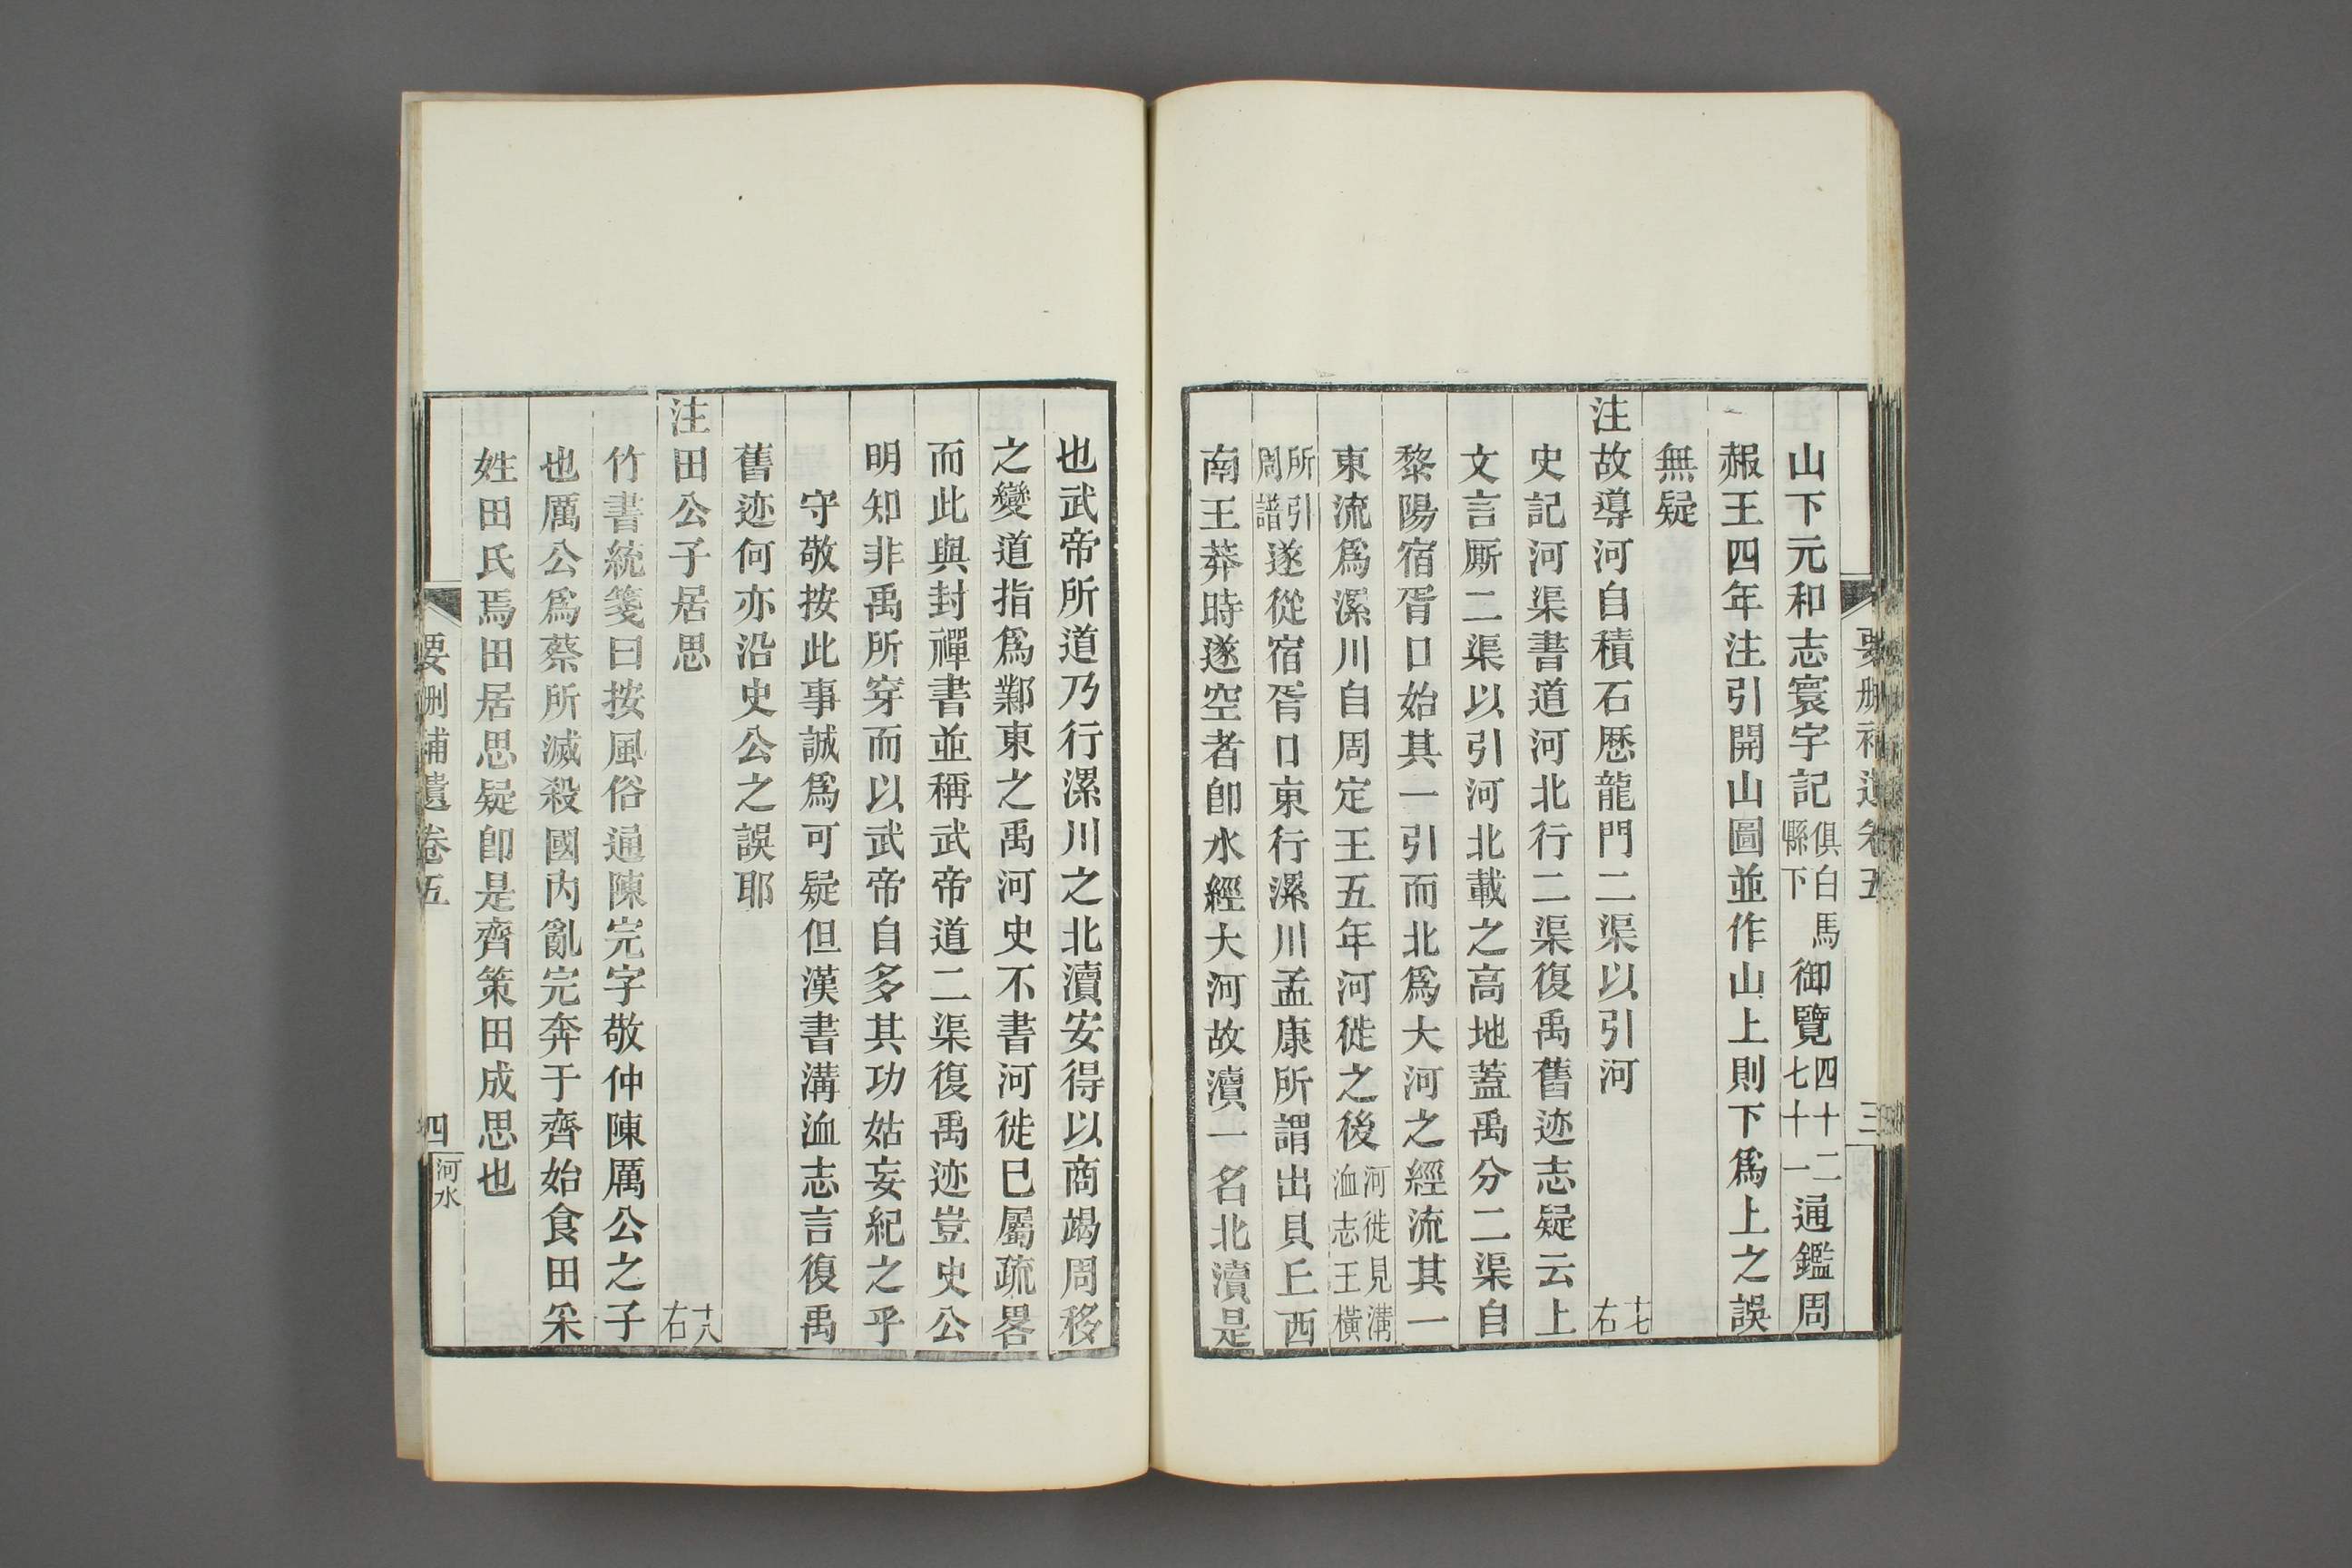 山下元和志寰宇記俱白馬縣下御覽四十二七十一通鑑周
赧王四年注引開山圖並作山上則下爲上之誤
無疑
注故導河自積石歷龍門二渠以引河十七右
史記河渠書道河北行二渠復禹舊迹志疑云上
文言厮二渠以引河北載之高地蓋禹分二渠自
黎陽宿胥口始其一引而北爲大河之經流其一
東流爲漯川自周定王五年河徙之後河徙見溝洫志王橫
所引周譜遂從宿胥口東行漯川孟康所謂出貝丘西
南王莽時遂空者卽水經大河故瀆一名北瀆是
也武帝所道乃行漯川之北瀆安得以商竭周移
之變道指爲鄴東之禹河史不書河徙已屬疏畧
而此與封禪書並稱武帝道二渠復禹迹豈史公
明知非禹所穿而以武帝自多其功姑妄紀之乎
守敬按此事誠爲可疑但漢書溝洫志言復禹
舊迹何亦沿史公之誤耶
注田公子居思十八右
竹書統箋曰按風俗通陳完字敬仲陳厲公之子
也厲公爲蔡所滅殺國內亂完奔于齊始食田采
姓田氏焉田居思疑卽是齊策田成思也
要刪補遺卷五
四
河水